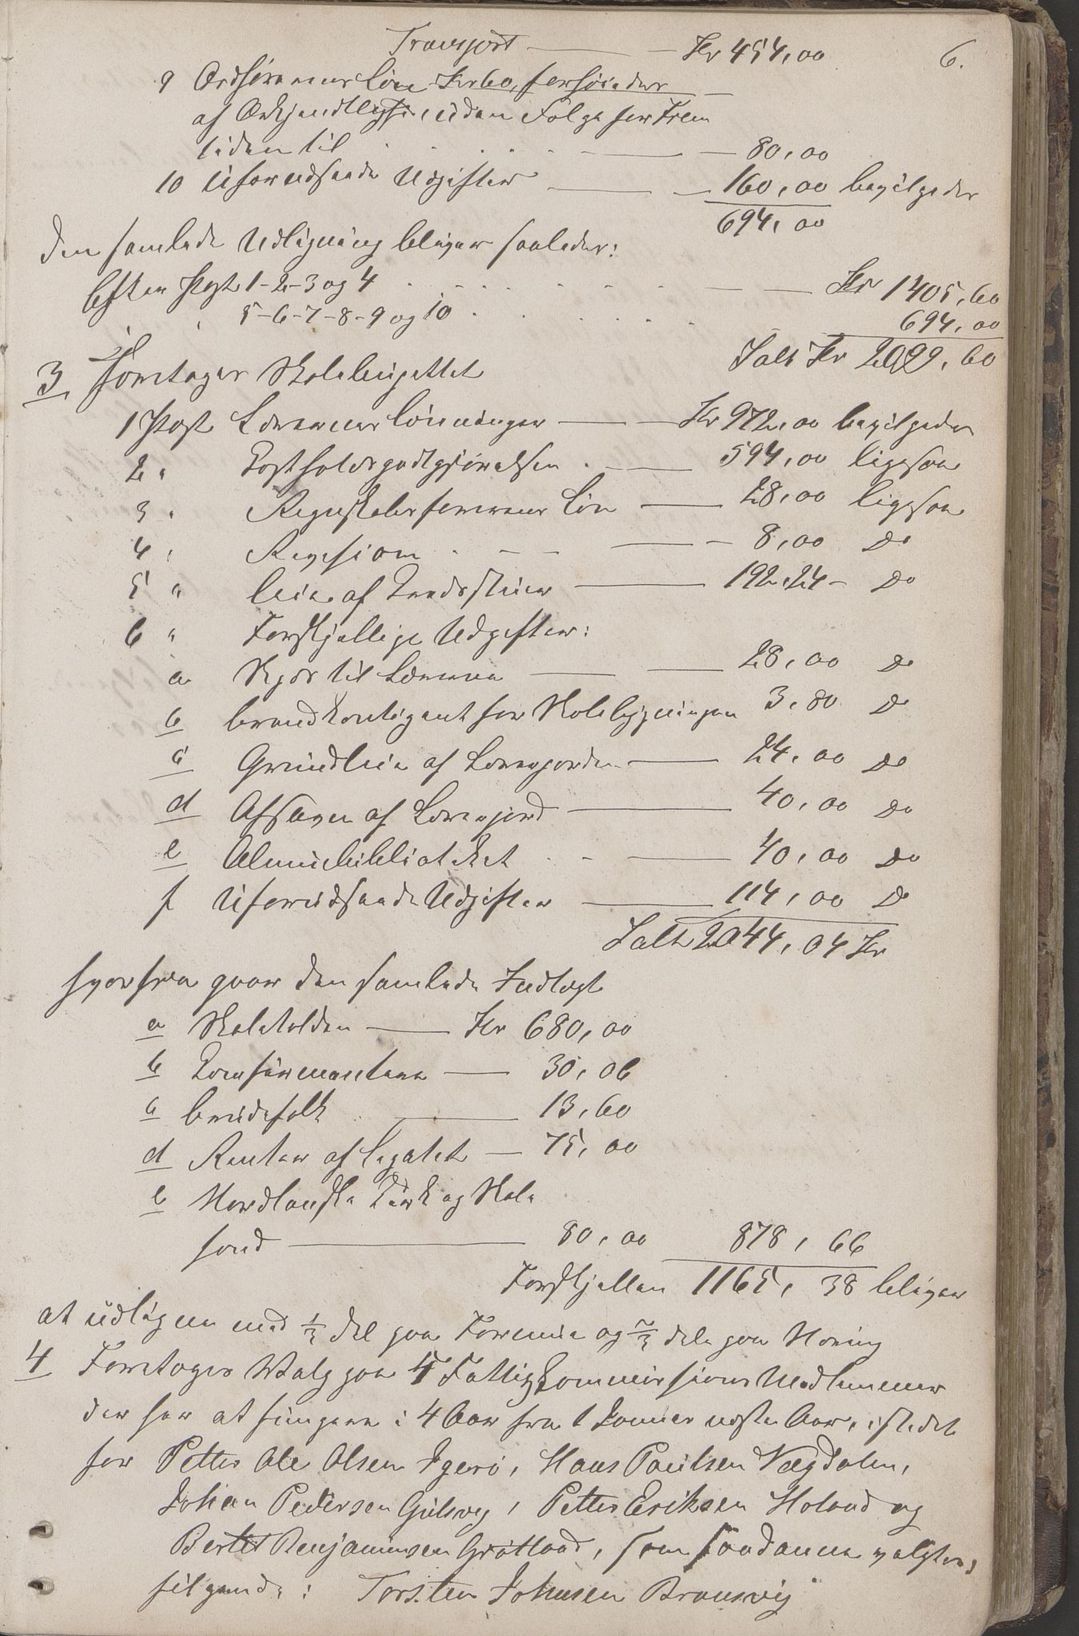 Transport — Kr 454,00
6.
9 Ordførerens Løn Kr 60, forhøiedes
af Ankjendtlighed, uden Følge for Frem
tiden til . . . . — 80,00
10 Uforudseede Udgifter — 160,00 bevilgedes
694,00
Den samlede Udligning bliver saaledes:
Efter Post 1-2-3 og 4 . . . . — Kr 1405,60
" 5-6-7-8-9 og 10 . . . . 694,00
Ialt Kr 2099,60
3 Foretoges Skolebugettet
1 Post Lærernes Lønninger — Kr 972,00 bevilgedes
2 " Kostholdsgodtgjørelsen . — 594,00 ligesaa
3 " Regnskabsførerens Løn — 28,00 ligesaa
4 " Revision . — — 8,00 Do
5 " Leie af Kredsstuer — 192,24 - Do
6 " Forskjellige Udgifter:
a Skyds til Lærerne — 28,00 Do
b Brandkontigent for Skolebygningen 3,80 Do
c Grundleie af Lærerjorden — 24,00 Do
d Afsavn af Lærerjord — 40,00 Do
e Almuebiblioteket . - — 40,00 Do
f Uforudseede Udgifter — 114,00 Do
Ialt 2044,04 Kr
hvorfra gaar den samlede Indtægt
a Skoleholden — Kr 680,00
b Konfirmanterne — 30,06
c Brudefolk — 13,60
d Renter af Legatet — 75,00
e Nordlandske Kirke og Skole
fond — 80,00 878,66
Forskjellen 1165,38 bliver
at udligne med 1/3 del paa Formue og 2/3 dele paa Næring
4 Foretoges Valg paa 5 Fattigkommissions Medlemmer
der har at fungere i 4 Aar fra 1 Januar næste Aar, istedet
for Petter Ole Olsen Igerø, Hans Paulsen Vægdalen,
Johan Pedersen Gulsvog, Petter Eriksen Holand og
Bertel Benjaminsen Grøttland, som saadanne valgtes,
følgende: Torsten Johnsen Brunsvig